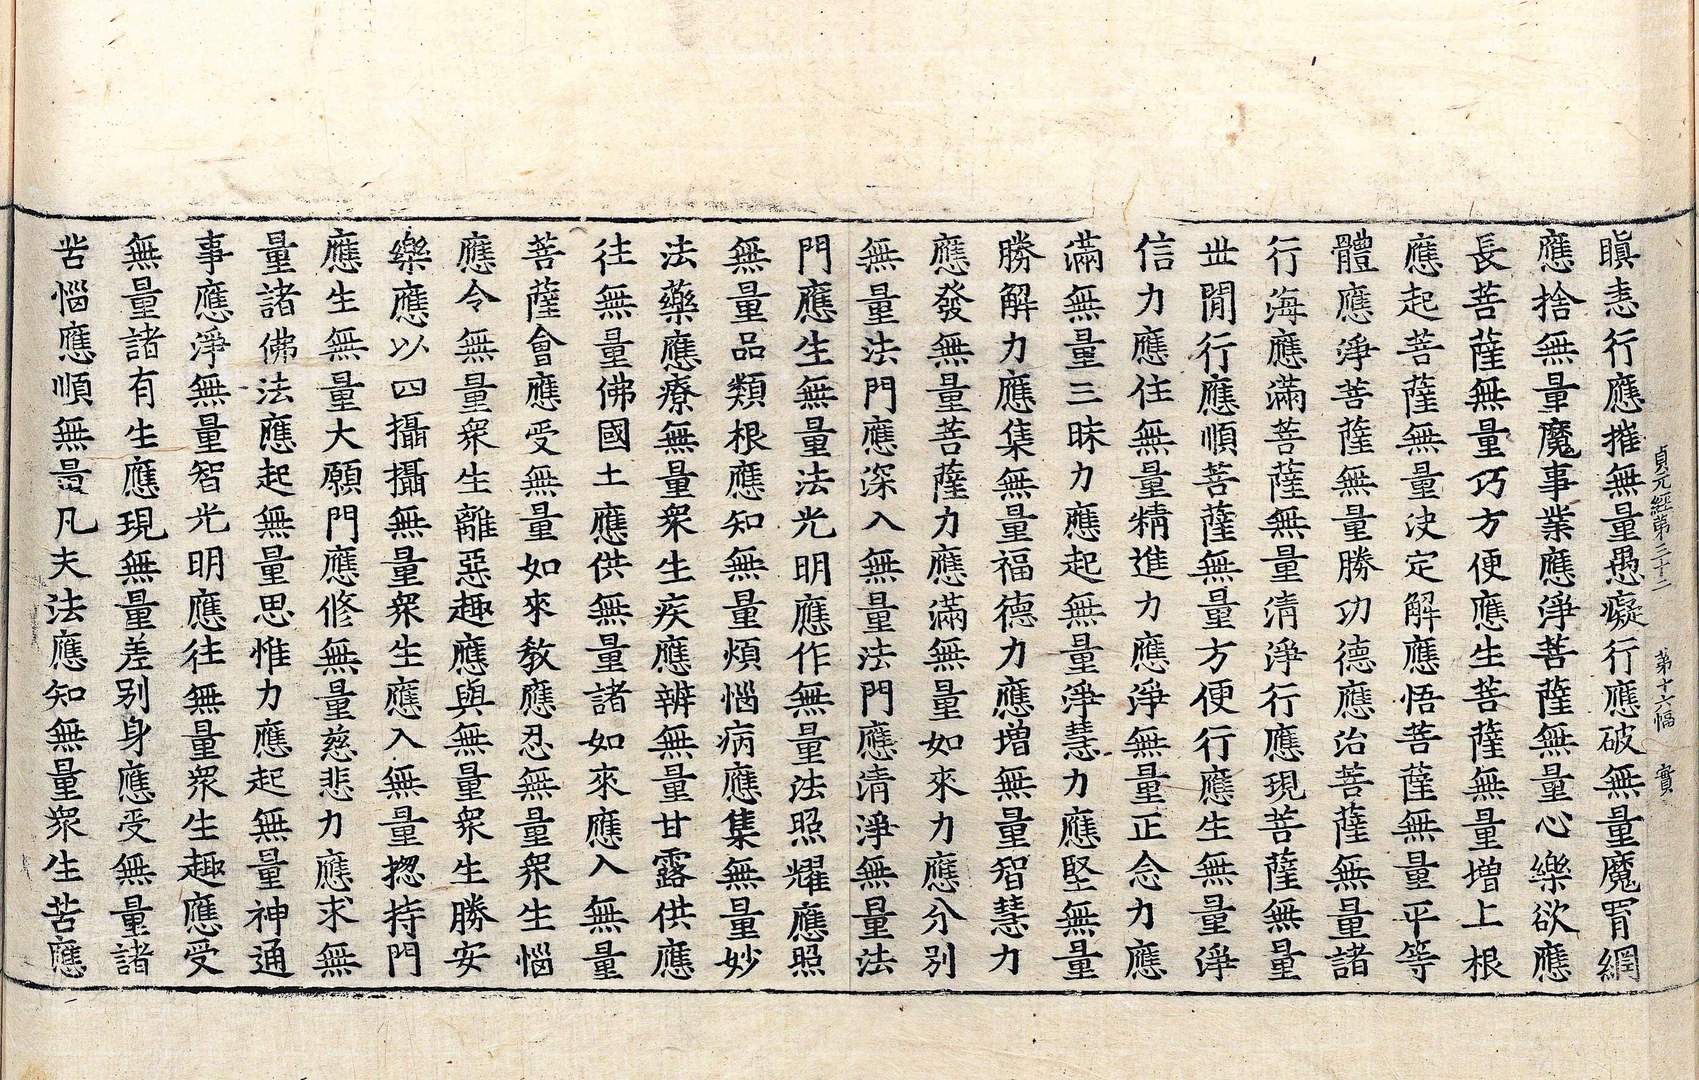 瞋恚行應摧無量愚癡行應破無量魔罥網
貞元經第三十二　第十六幅　實
應捨無量魔事業應淨菩薩無量心樂欲應
長菩薩無量巧方便應生菩薩無量增上根
應起菩薩無量決定解應悟菩薩無量平等
體應淨菩薩無量勝功德應治菩薩無量諸
行海應滿菩薩無量清淨行應現菩薩無量
世間行應順菩薩無量方便行應生無量淨
信力應住無量精進力應淨無量正念力應
滿無量三昧力應起無量淨慧力應堅無量
勝解力應集無量福德力應增無量智慧力
應發無量菩薩力應滿無量如來力應分別
無量法門應深入無量法門應清淨無量法
門應生無量法光明應作無量法照耀應照
無量品類根應知無量煩惱病應集無量妙
法藥應療無量眾生疾應辨無量甘露供應
往無量佛國土應供無量諸如來應入無量
菩薩會應受無量如來教應忍無量眾生惱
應令無量眾生離惡趣應與無量眾生勝安
樂應以四攝攝無量眾生應入無量揔持門
應生無量大願門應修無量慈悲力應求無
量諸佛法應起無量思惟力應起無量神通
事應淨無量智光明應往無量眾生趣應受
無量諸有生應現無量差別身應受無量諸
苦惱應順無量凡夫法應知無量眾生苦應